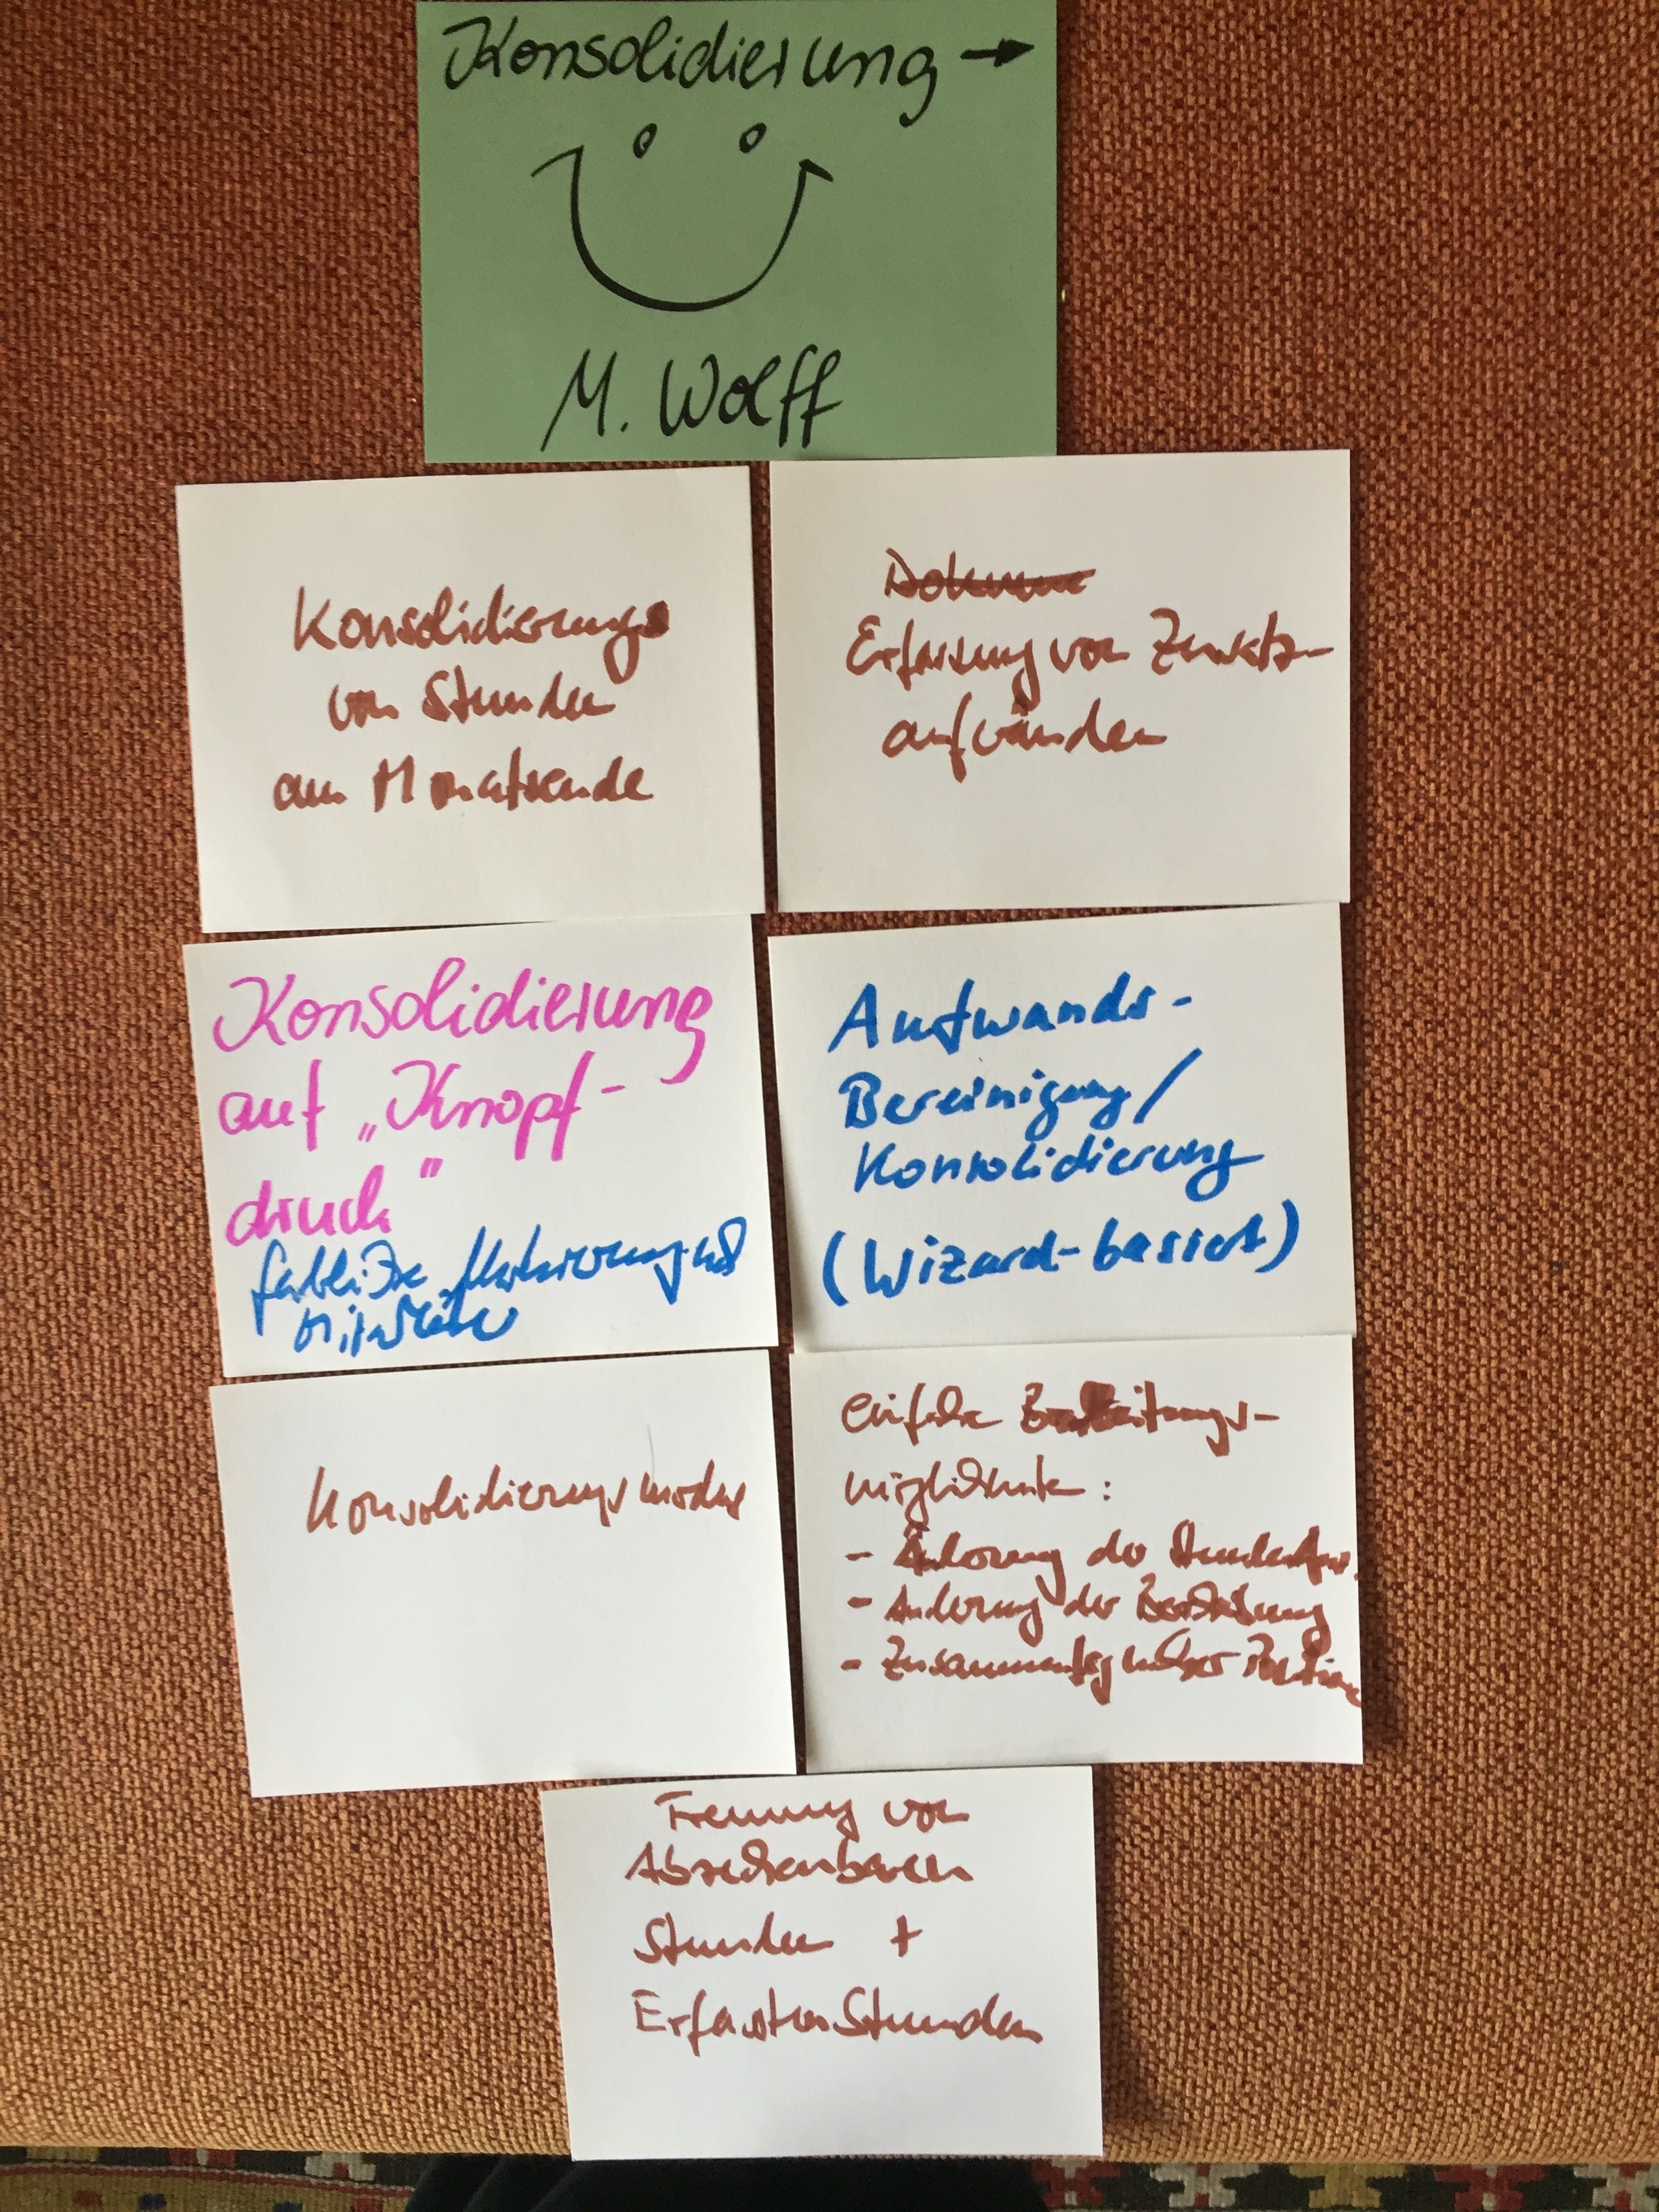 Konsolidierung →
M. Wolff
Konsolidierung
von Stunden
am Monatsende
Erfassung von Zusatz-
aufwänden
Konsolidierung
auf „Knopf-
druck"
farbliche Markierung
Aufwands-
Bereinigung/
Konsolidierung
(Wizard-basiert)
Konsolidierungsmodus
einfache Bearbeitungs-
möglichkeiten:
- Änderung der
- Änderung der Beschreibung
- Zusammenfg
Trennung von
Abrechenbaren
Stunden +
Erfassten Stunden